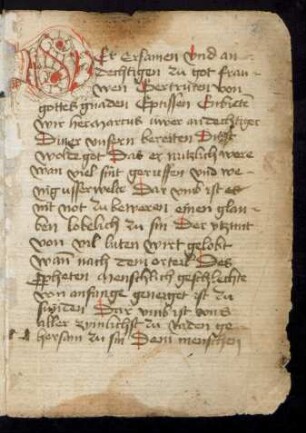 Der Ersamen vnd an
dechtigen zu got frau
wen Gertruten von
gottes gnaden Eptissen Enbiete
wir hermarcus uwer andechtiger
Diner vnsern bereiten Dinst
wolde got Das er nutzlich were
wan viel sint geruffen vnd we
nig vsserwelt Dar vmb ist es
nit not zu beweren einen glau
ben lobelich zu sin Der ytzunt
von vil luten wirt gelobt
wan nach dem orteil Des
Propheten menschlich geschlechte
von anfange geneiget ist zu
sunden Dar vmb ist vns
aller zimlichst zu raden ge
horsam zu sin Dem menschen